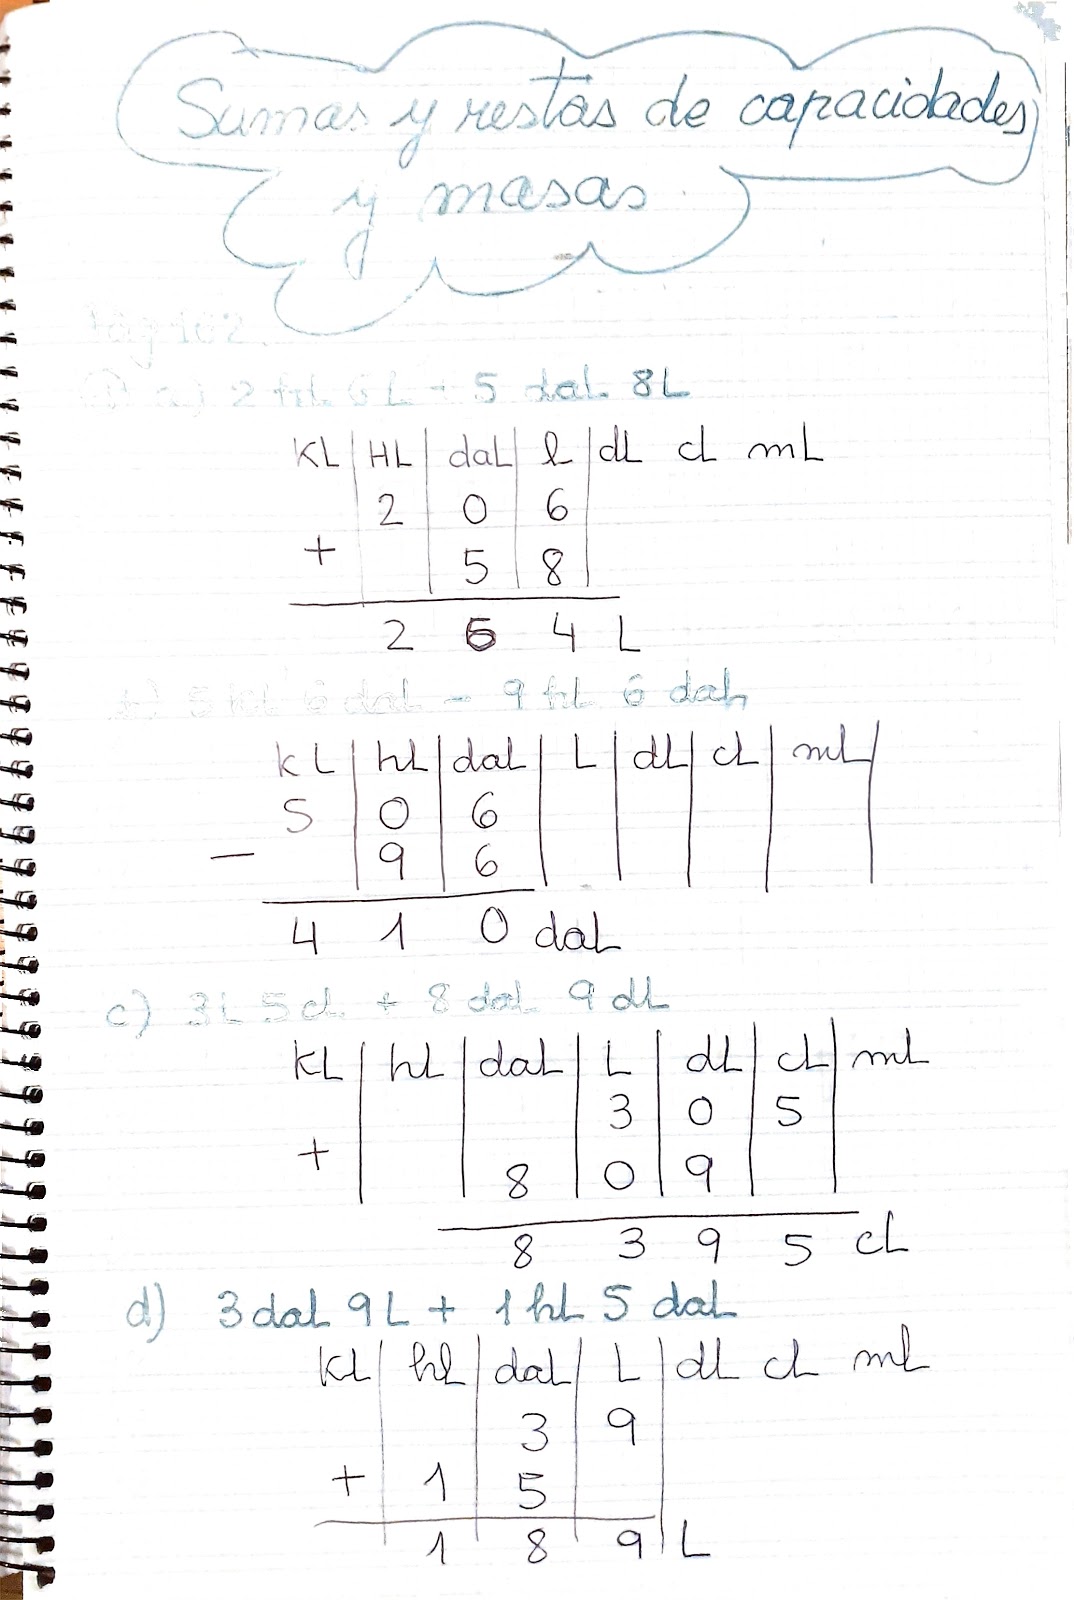 Sumas y restas de capacidades
y masas.
Pág 162.
a) 2 hL 6 L + 5 daL 8L
KL HL daL l dL cL mL
2 0 6
+ 5 8
2 6 4 L
b) 5 kL 6 daL - 9 hL 6 daL
KL hL daL L dL cL mL
5 0 6
- 9 6
4 1 0 daL
c) 3L 5 cL + 8 daL 9 dL
KL hL daL L dL cL mL
3 0 5
+ 8 0 9
8 3 9 5 cL
d) 3 daL 9 L + 1 hL 5 daL
KL hL daL L dL cL mL
3 9
+ 1 5
1 8 9 L